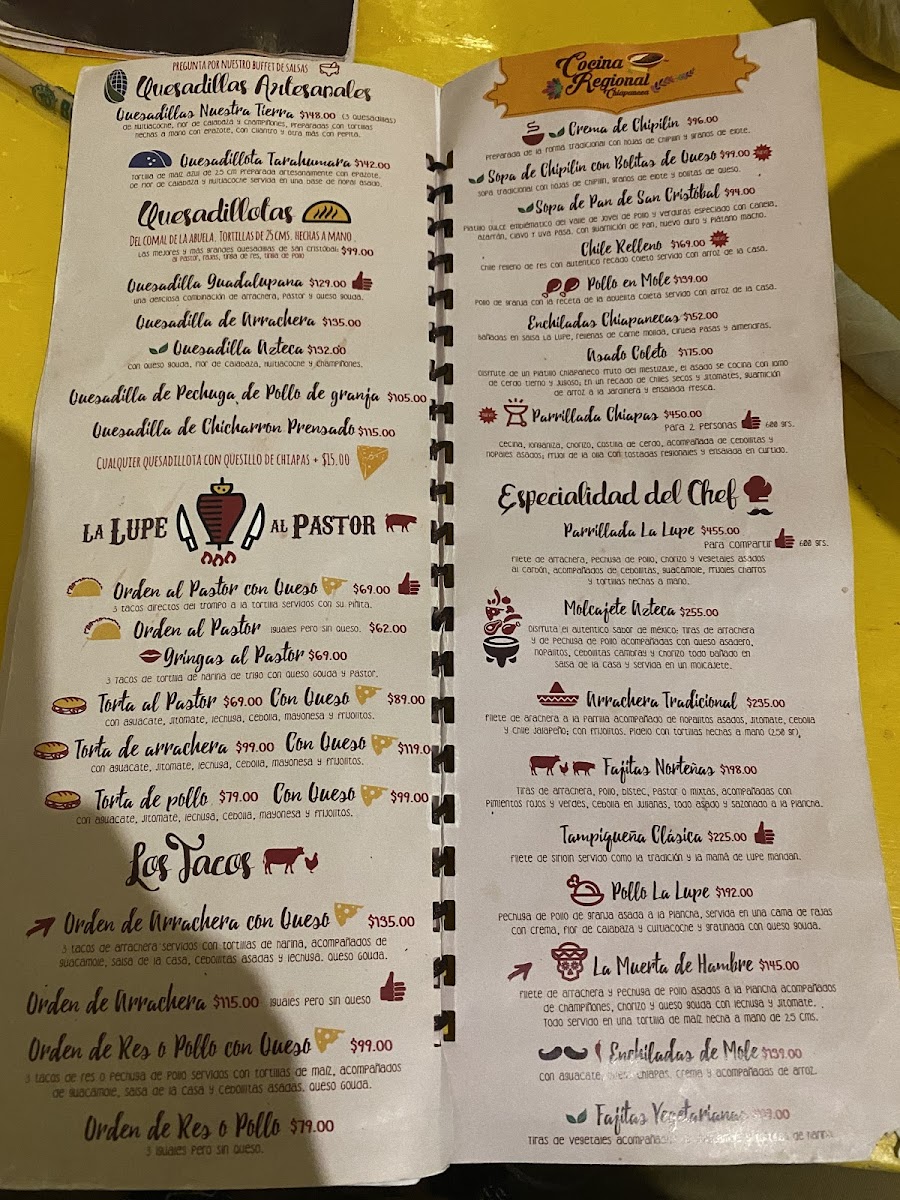 PREGUNTA POR NUESTRO BUFFET DE SALSAS
Quesadillas Artesanales
Quesadillas Nuestra Tierra $148.00 (3 quesadillas)
de huitlacoche, flor de calabaza y champiñones, preparadas con tortillas
hechas a mano con epazote, con cilantro y otra más con pepita.
Quesadillota Tarahumara $142.00
Tortilla de maíz azul de 25 cm preparada artesanalmente con epazote,
de flor de calabaza y huitlacoche servida en una base de nopal asado.
Quesadillotas
DEL COMAL DE LA ABUELA. TORTILLAS DE 25CMS. HECHAS A MANO
Las mejores y más grandes quesadillas de san cristóbal: $99.00
al pastor, rajas, tinga de res, tinga de pollo
Quesadilla Guadalupana $129.00
una deliciosa combinación de arrachera, pastor y queso gouda.
Quesadilla de Arrachera $135.00
Quesadilla Azteca $132.00
con queso gouda, flor de calabaza, huitlacoche y champiñones.
Quesadilla de Pechuga de Pollo de granja $105.00
Quesadilla de Chicharron Prensado $115.00
CUALQUIER QUESADILLOTA CON QUESILLO DE CHIAPAS + $15.00
LA LUPE AL PASTOR
Orden al Pastor con Queso $69.00
3 tacos directos del trompo a la tortilla servidos con su piñita.
Orden al Pastor iguales pero sin queso. $62.00
Gringas al Pastor $69.00
3 tacos de tortilla de harina de trigo con queso gouda y pastor.
Torta al Pastor $69.00 Con Queso $89.00
con aguacate, jitomate, lechuga, cebolla, mayonesa y frijolitos.
Torta de arrachera $99.00 Con Queso $119.0
con aguacate, jitomate, lechuga, cebolla, mayonesa y frijolitos.
Torta de pollo $79.00 Con Queso $99.00
con aguacate, jitomate, lechuga, cebolla, mayonesa y frijolitos.
Los Tacos
Orden de Arrachera con Queso $135.00
3 tacos de arrachera servidos con tortillas de harina, acompañados de
guacamole, salsa de la casa, cebollitas asadas y lechuga. queso gouda.
Orden de Arrachera $115.00 iguales pero sin queso
Orden de Res o Pollo con Queso $99.00
3 tacos de res o pechuga de pollo servidos con tortillas de maíz, acompañados
de guacamole, salsa de la casa y cebollitas asadas. queso gouda.
Orden de Res o Pollo $79.00
3 iguales pero sin queso.
Cocina
Regional
Chiapaneca
Crema de Chipilín $96.00
Preparada de la forma tradicional con hojas de chipilín y granos de elote.
Sopa de Chipilin con Bolitas de Queso $99.00
Sopa tradicional con hojas de chipilín, granos de elote y bolitas de queso.
Sopa de Pan de San Cristóbal $94.00
Platillo dulce emblemático del Valle de Jovel de pollo y verduras especiado con canela,
azafrán, clavo y uva pasa. con guarnición de pan, huevo duro y plátano macho.
Chile Relleno $169.00
Chile relleno de res con autentico recado coleto servido con arroz de la casa.
Pollo en Mole $139.00
Pollo de granja con la receta de la abuelita coleta servido con arroz de la casa.
Enchiladas Chiapanecas $152.00
Bañadas en salsa La Lupe, rellenas de carne molida, ciruela pasas y almendras.
Asado Coleto $175.00
Disfrute de un platillo chiapaneco fruto del mestizaje, el asado se cocina con lomo
de cerdo tierno y jugoso, en un recado de chiles secos y jitomates, guarnición
de arroz a la jardinera y ensalada fresca.
Parrillada Chiapas $450.00
Para 2 personas 600 grs.
Cecina, longaniza, chorizo, costilla de cerdo, acompañada de cebollitas y
nopales asados; frijol de la olla con tostadas regionales y ensalada en curtido.
Especialidad del Chef
Parrillada La Lupe $455.00
Para compartir 600 grs.
Filete de arrachera, pechuga de pollo, chorizo y vegetales asados
al carbón, acompañados de cebollitas, guacamole, frijoles charros
y tortillas hechas a mano.
Molcajete Azteca $255.00
Disfruta el autentico sabor de méxico: tiras de arrachera
y de pechuga de pollo acompañadas con queso asadero,
nopalitos, cebollitas cambray y chorizo todo bañado en
salsa de la casa y servida en un molcajete.
Arrachera Tradicional $235.00
Filete de arachera a la parrilla acompañado de nopalitos asados, jitomate, cebolla
y chile jalapeño; con frijolitos. Pídelo con tortillas hechas a mano (250 gr).
Fajitas Norteñas $198.00
Tiras de arrachera, pollo, bistec, pastor o mixtas, acompañadas con
pimientos rojos y verdes, cebolla en julianas, todo asado y sazonado a la plancha.
Tampiqueña Clásica $225.00
Filete de sirloin servido como la tradición y la mamá de lupe mandan.
Pollo La Lupe $192.00
Pechuga de pollo de granja asada a la plancha, servida en una cama de rajas
con crema, flor de calabaza y cuitlacoche y gratinada con queso gouda.
La Muerta de Hambre $145.00
Filete de arrachera y pechuga de pollo asados a la plancha acompañados
de champiñones, chorizo y queso gouda con lechuga y jitomate.
Todo servido en una tortilla de maíz hecha a mano de 25 cms.
Enchiladas de Mole $139.00
con aguacate, chiapas, crema y acompañadas de arroz.
Fajitas Vegetarianas
Tiras de vegetales de harina